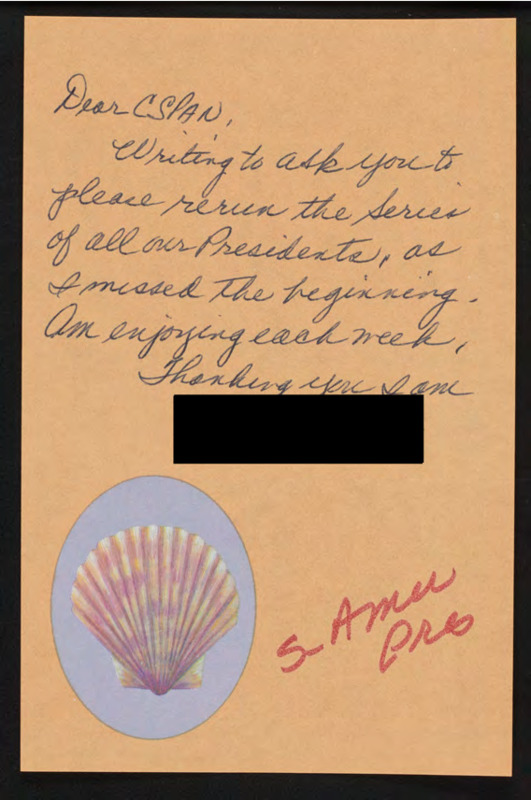 Dear CSPAN,
Writing to ask you to
please rerun the series
of all our Presidents, as
I missed the beginning.
Am enjoying each week,
Thanking you I am
S Amer
Pres